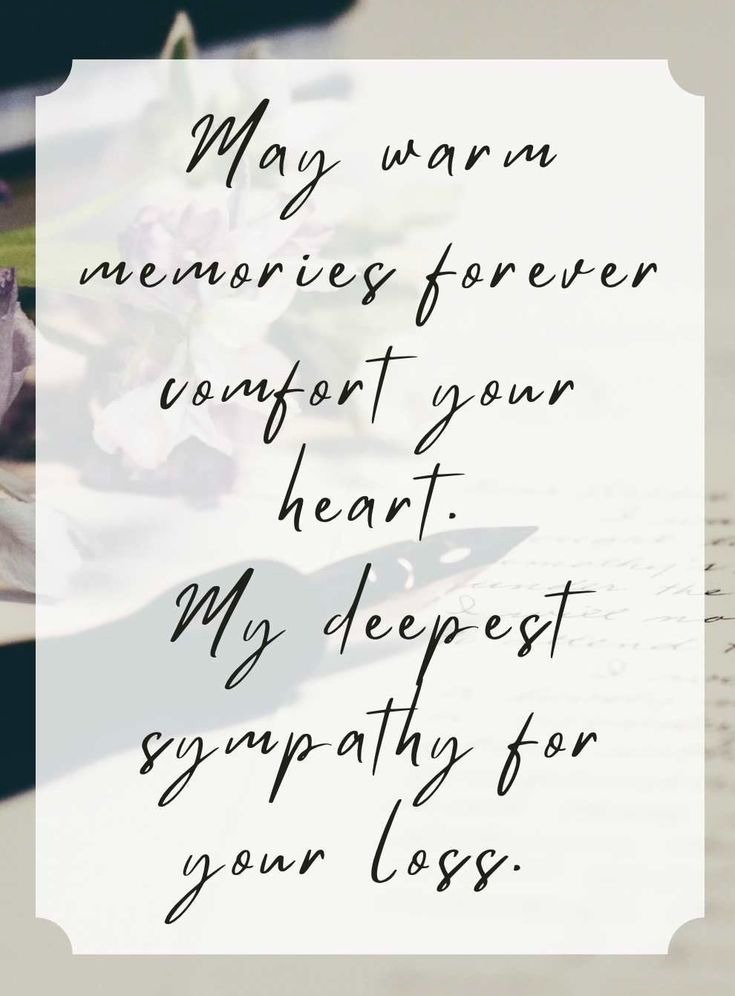 May warm
memories forever
comfort your
heart.
My deepest
sympathy for
your loss.
the